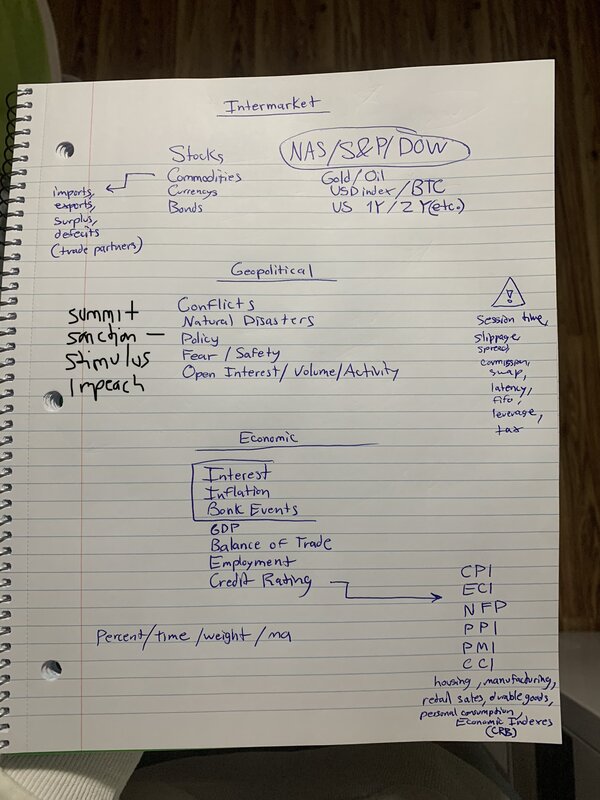 Intermarket
Stocks NAS/S&P/DOW
Commodities Gold/Oil
Currencys USD index/BTC
Bonds US 1Y/2Y(etc.)
imports,
exports,
surplus,
defecits
(trade partners)
Geopolitical
Conflicts
Natural Disasters
Policy
Fear/Safety
Open Interest/Volume/Activity
summit
sanction —
stimulus
impeach
!
Session time,
slippage,
spread,
commission,
swap,
latency,
fifo,
leverage,
tax
Economic
Interest
Inflation
Bank Events
GDP
Balance of Trade
Employment
Credit Rating
CPI
ECI
NFP
PPI
PMI
CCI
housing, manufacturing,
retail sales, durable goods,
personal consumption,
Economic Indexes
(CRB)
Percent/time/weight/ma